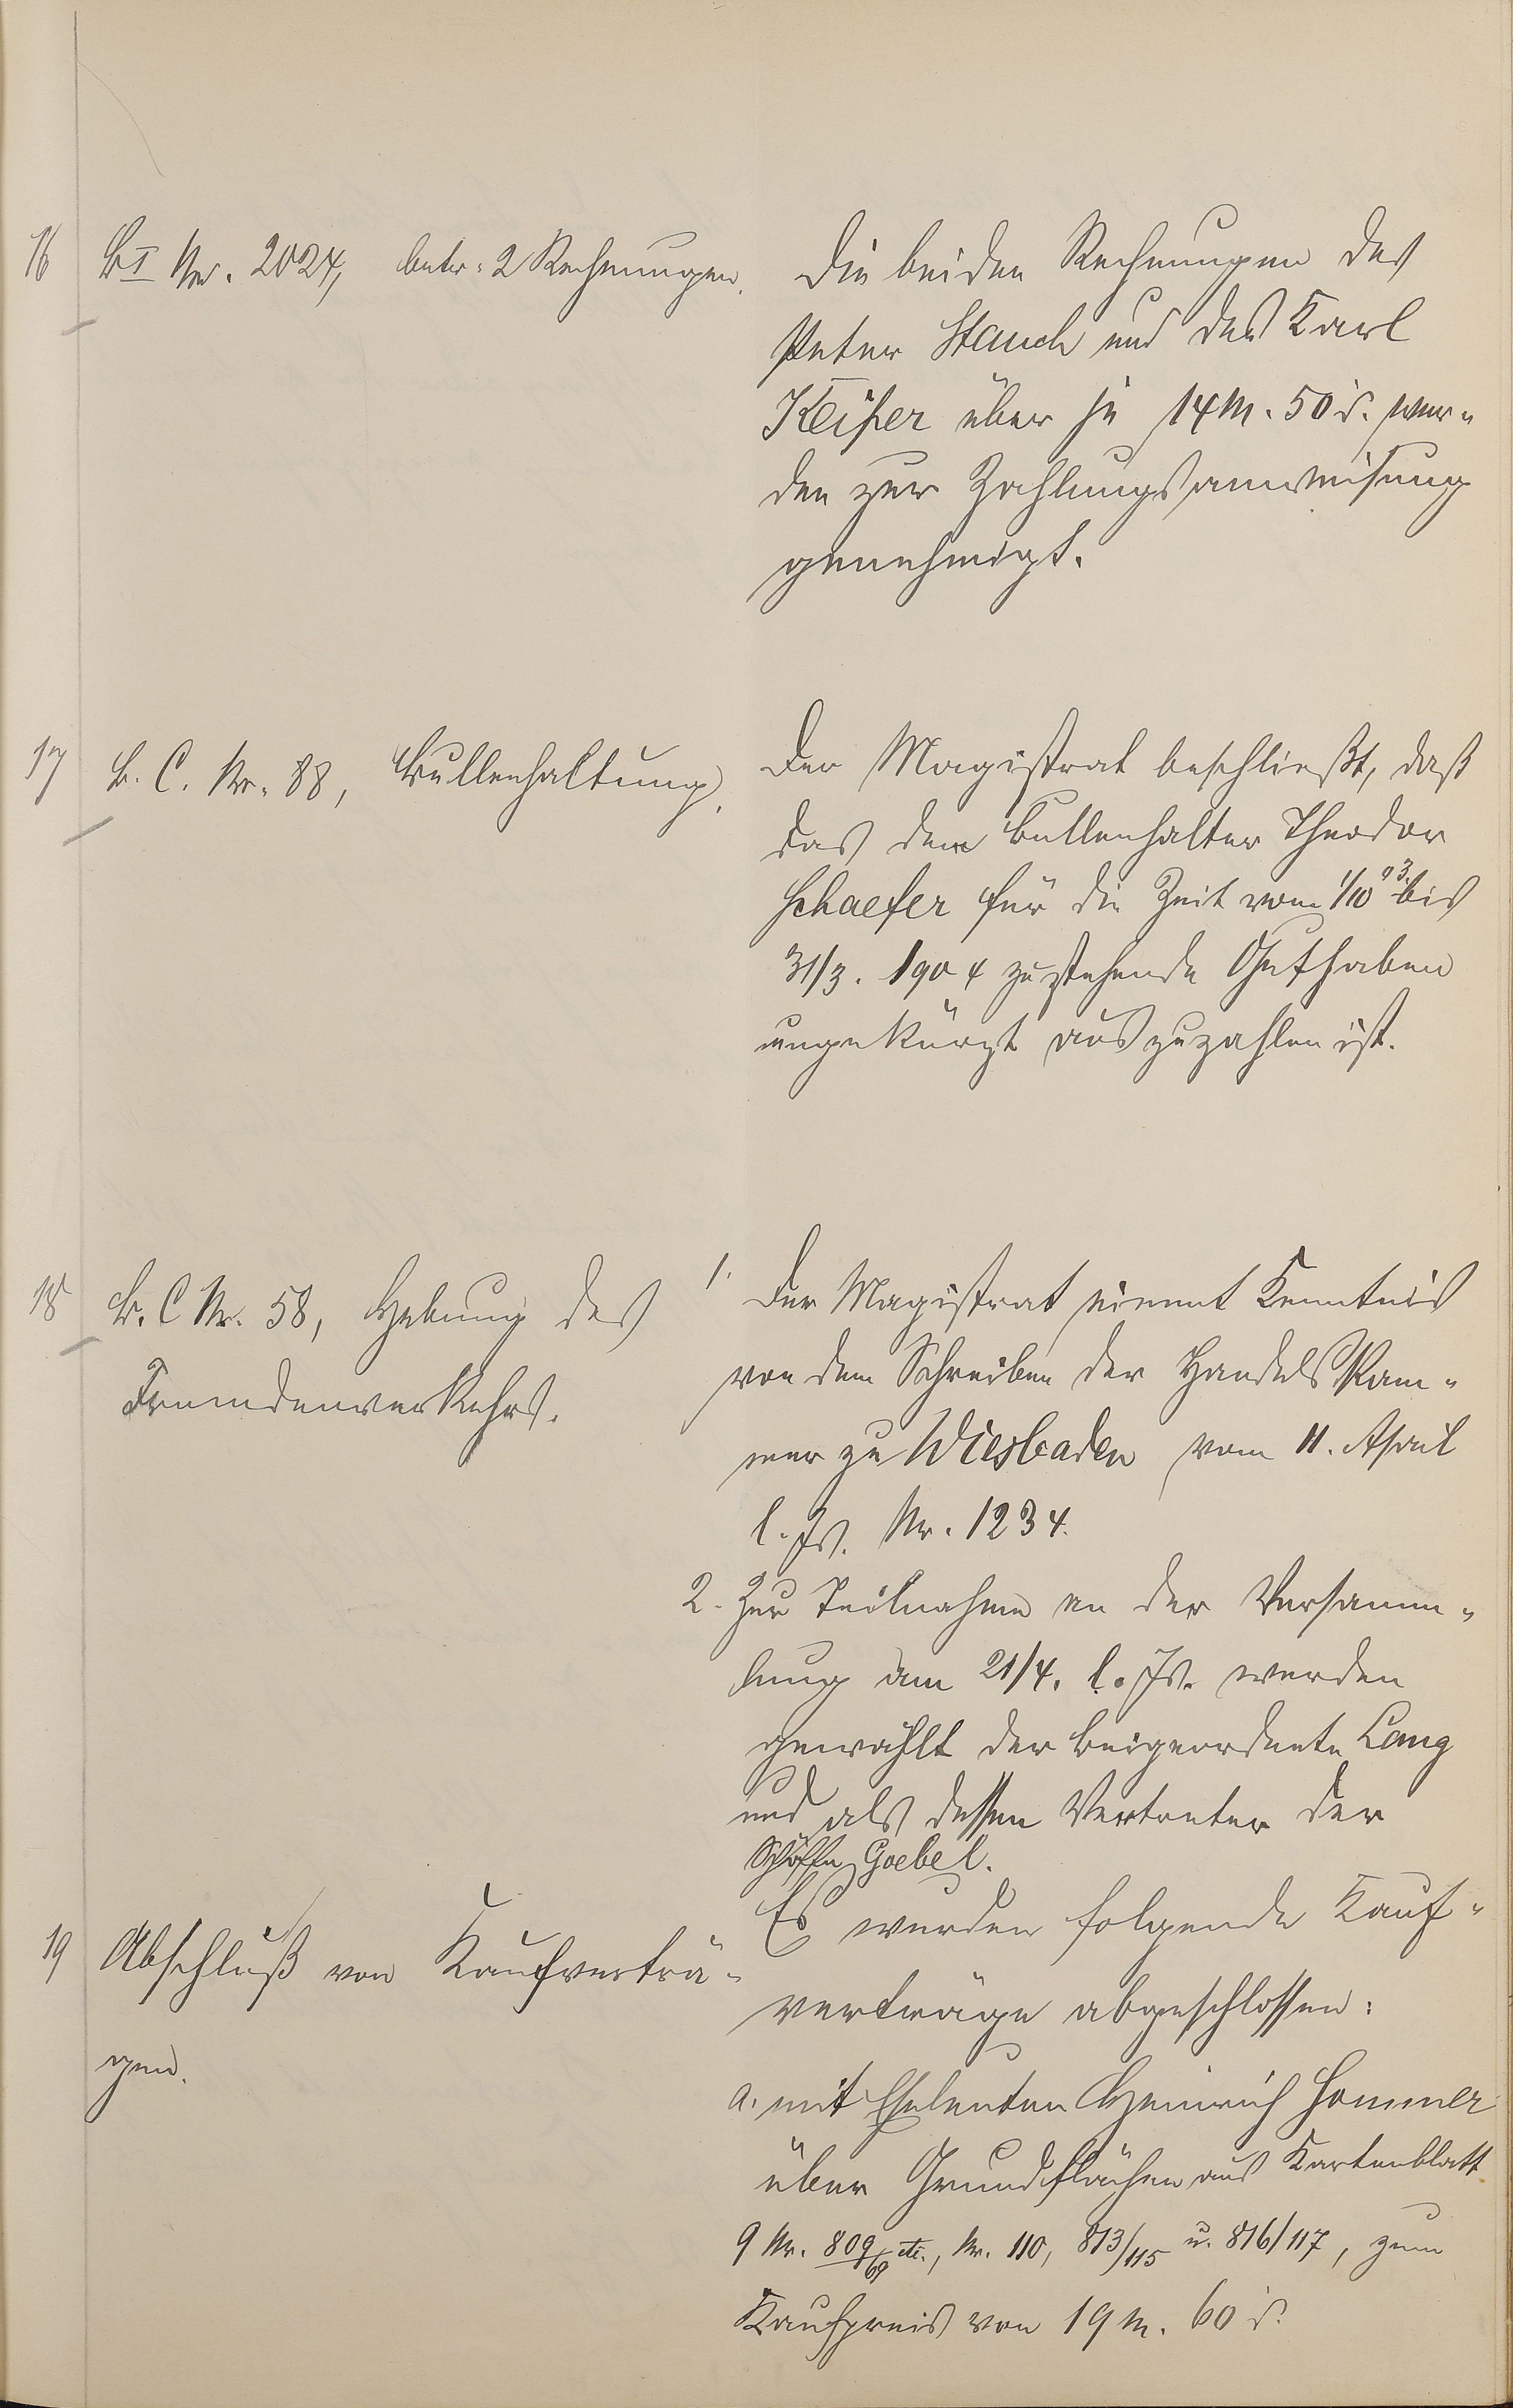 16 B I Nr. 2024, betr. 2 Rechnungen.
Die beiden Rechnungen des
Peter Stauch und des Karl
Keiper über je 14 M. 50 d. wer-
den zur Zahlungsanweisung
genehmigt.
17 B. C. Nr. 88, Bullenhaltung.
Der Magistrat beschließt, daß
das dem Bullenhalter Theodor
Schaefer für die Zeit vom 1/10 03. bis
31/3. 1904 zustehende Guthaben
ungekürzt auszuzahlen ist.
18 B. C Nr. 58, Hebung des
Fremdenverkehrs.
1. Der Magistrat nimmt Kenntnis
von dem Schreiben der Handelskam-
mer zu Wiesbaden vom 11. April
l. Js. Nr. 1234.
2. Zur Teilnahme an der Versamm-
lung am 21/4. l. Js. werden
gewählt der Beigeordnete Lang
und als dessen Vertreter der
Schöffe Goebel.
19 Abschluß von Kaufverträ-
gen.
Es wurden folgende Kauf-
verträge abgeschlossen:
a. mit Eheleuten Heinrich Hommer
über Grundflächen aus Kartenblatt
9 Nr. 809/69 etc., Nr. 110, 813/115 u. 816/117, zum
Kaufpreis von 19 M. 60 d.